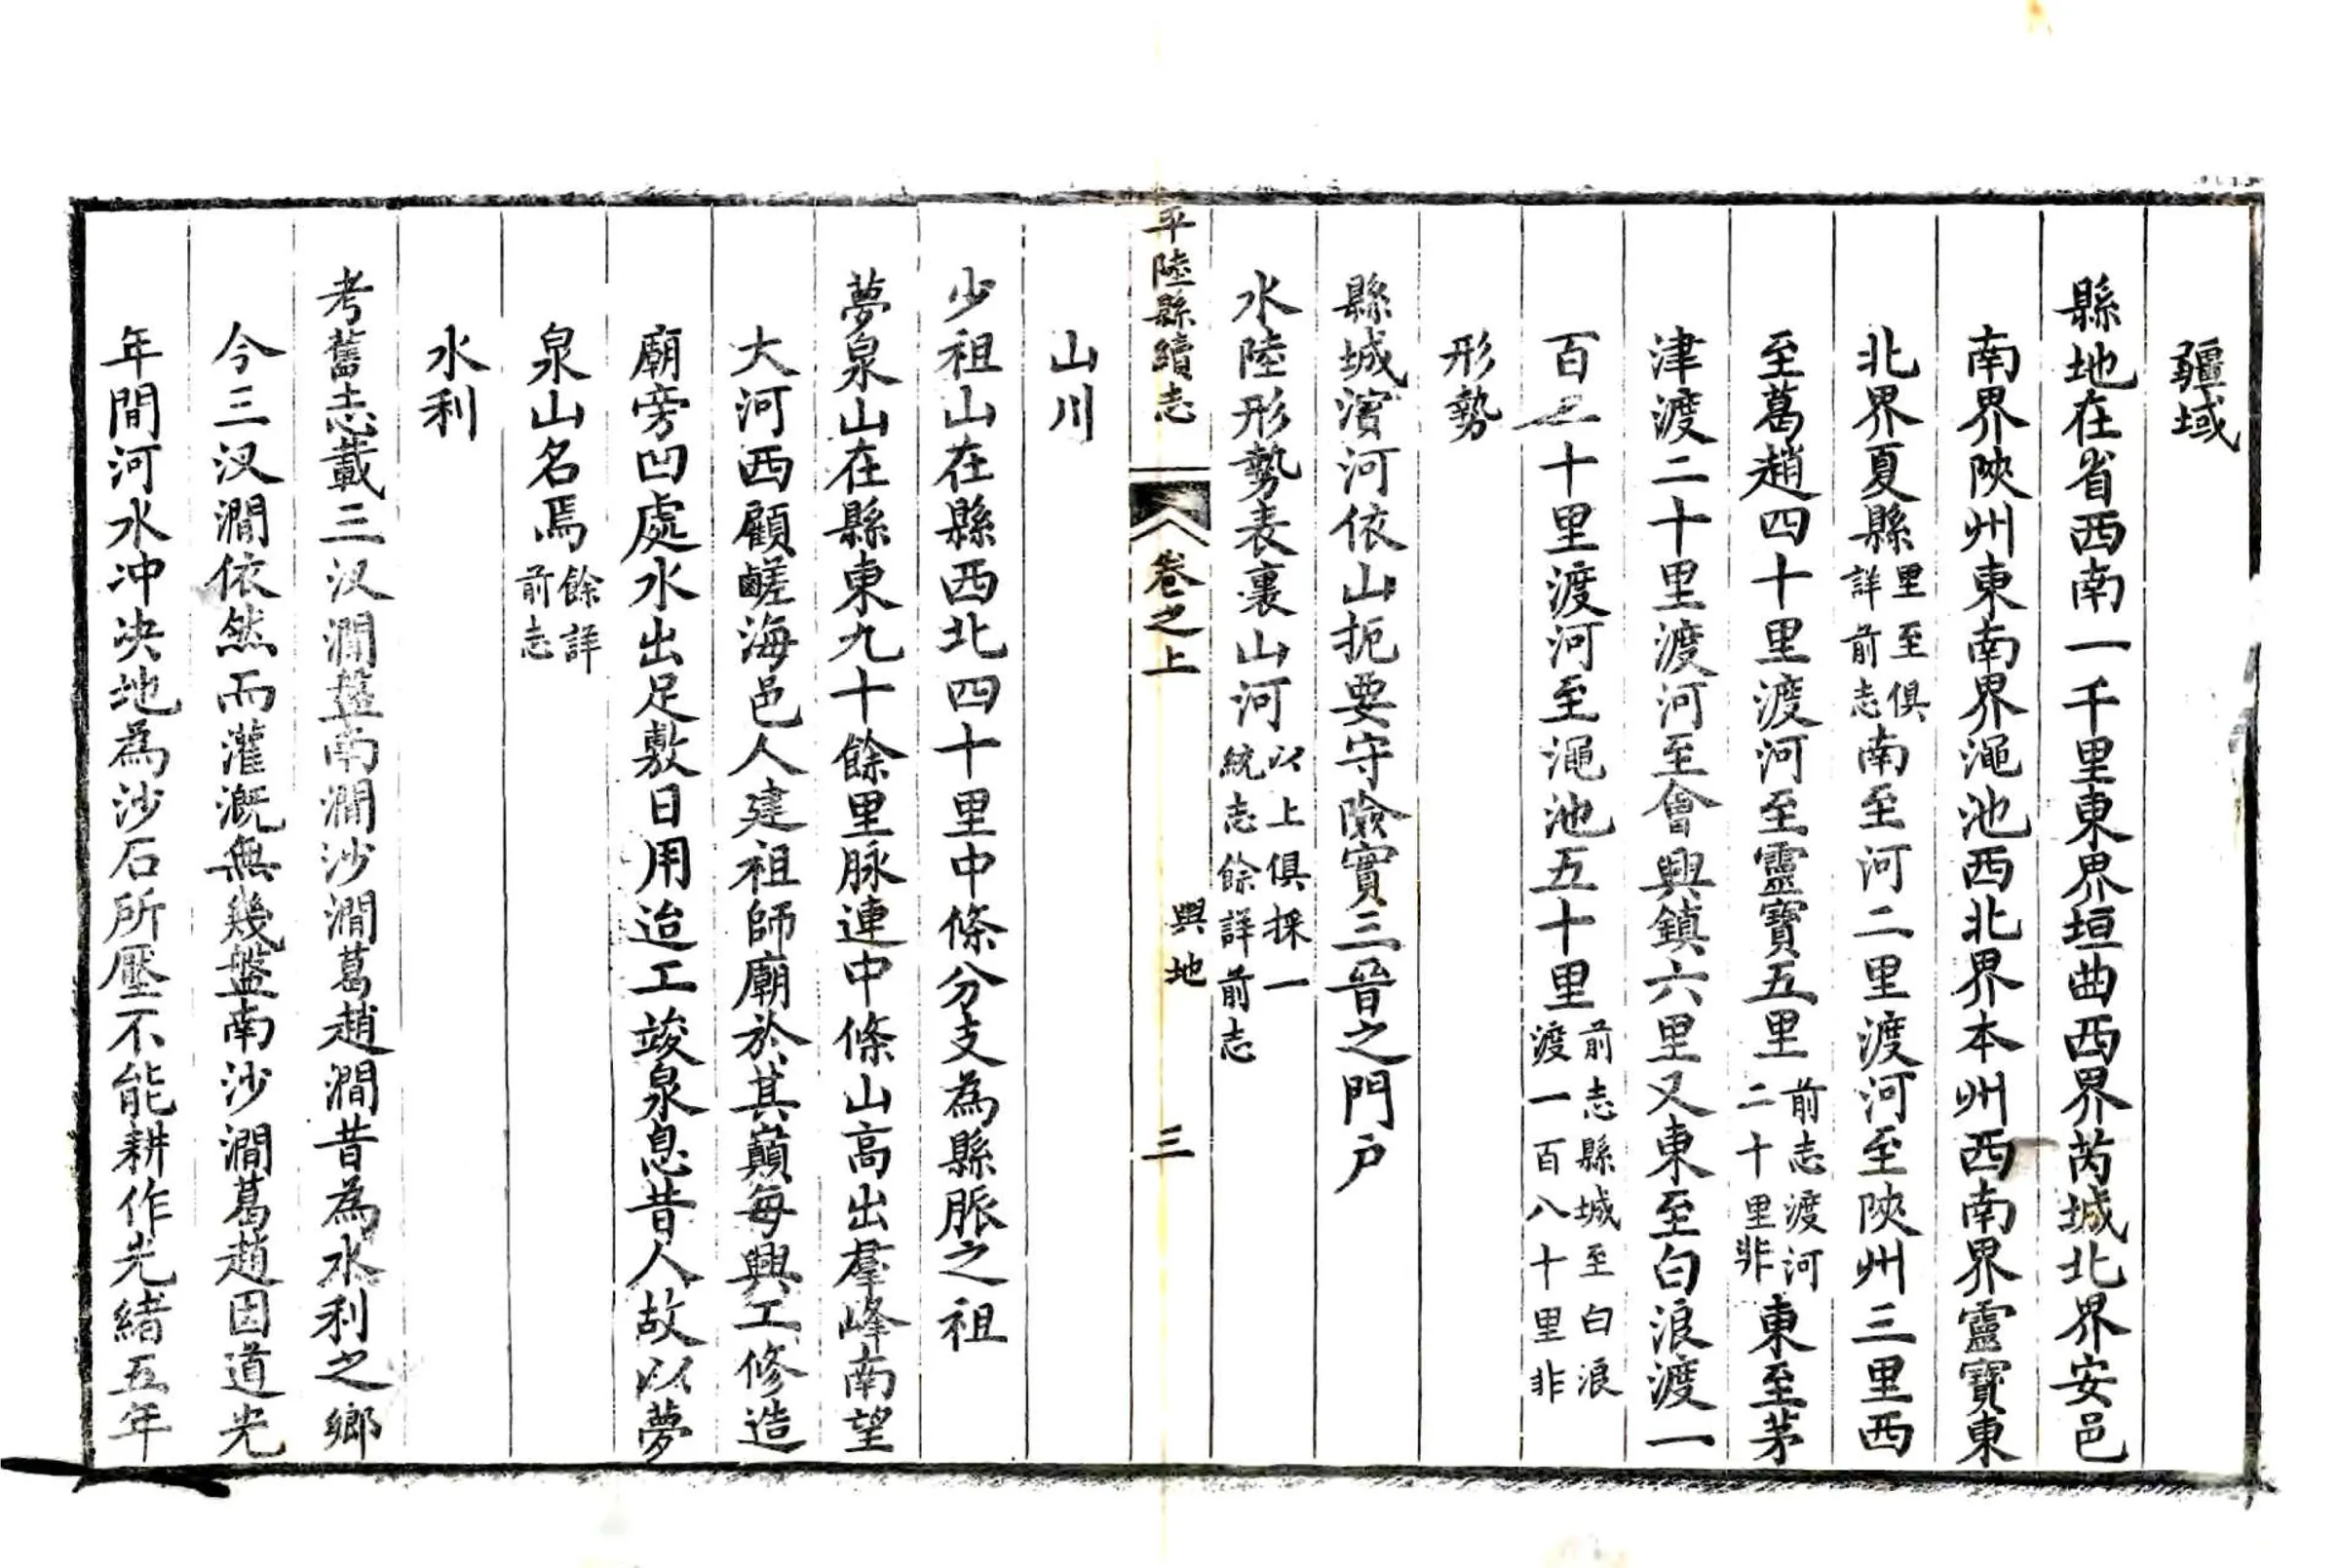 疆域
縣地在省西南一千里東界垣曲西界芮城北界安邑
南界陝州東南界澠池西北界本州西南界靈寶東
北界夏縣里至俱詳前志南至河二里渡河至陝州三里西
至葛趙四十里渡河至靈寶五里前志渡河二十里非東至茅
津渡二十里渡河至會興鎮六里又東至白浪渡一
百二十里渡河至澠池五十里前志縣城至白浪渡一百八十里非
形勢
縣城濱河依山扼要守險實三晉之門户
水陸形勢表裏山河以上俱採一統志餘詳前志
平陸縣續志 卷之上 輿地 三
山川
少祖山在縣西北四十里中條分支為縣脈之祖
夢泉山在縣東九十餘里脉連中條山高出羣峰南望
大河西顧鹺海邑人建祖師廟於其巔每興工修造
廟旁凹處水出足敷日用迨工竣泉息昔人故以夢
泉山名焉餘詳前志
水利
考舊志載三汊澗盤南澗沙澗葛趙澗昔為水利之鄉
今三汊澗依然而灌溉無幾盤南沙澗葛趙因道光
年間河水冲決地為沙石所壓不能耕作光緒五年